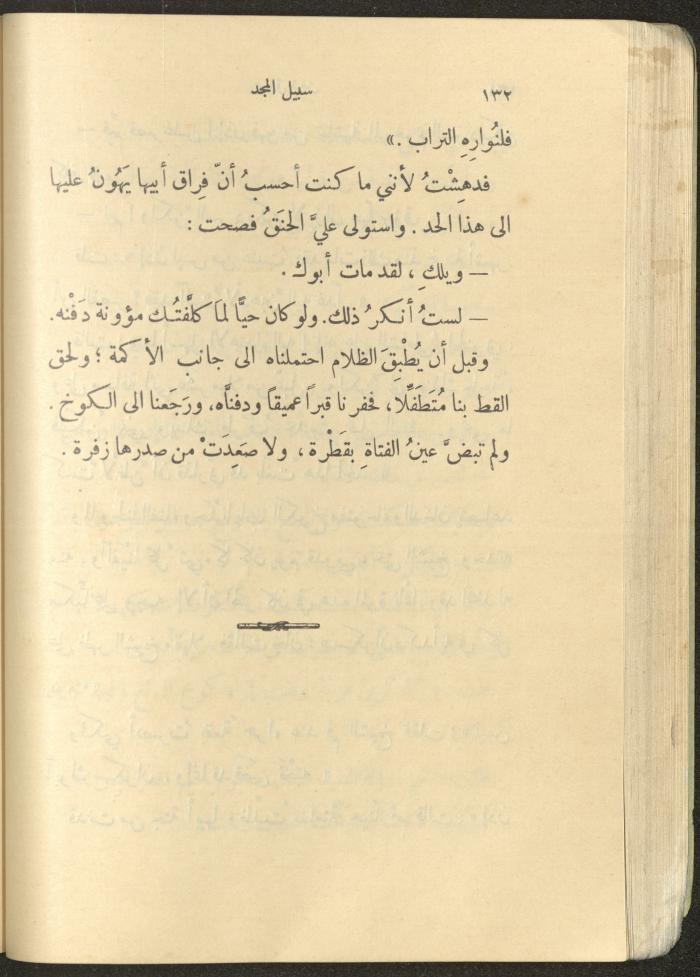 ١٣٢ سبيل المجد
فلنُوارِهِ التراب .»
فدهِشْتُ لأنني ما كنت أحسبُ أنّ فِراق أبيها يَهُونُ عليها
الى هذا الحد . واستولى عليَّ الحنَقُ فصحت :
— ويلكِ ، لقد مات أبوك .
— لستُ أنكرُ ذلك. ولو كان حيًّا لمَا كلَّفتُك مؤونة دَفْنه.
وقبل أن يُطْبِقَ الظلام احتملناه الى جانب الأكمة ؛ ولحق
القط بنا مُتَطَفِّلًا، فحفرنا قبراً عميقاً ودفنَّاه، ورَجَعنا الى الكوخ .
ولم تبضَّ عينُ الفتاةِ بقَطْرة ، ولا صَعِدَتْ من صدرها زفرة .